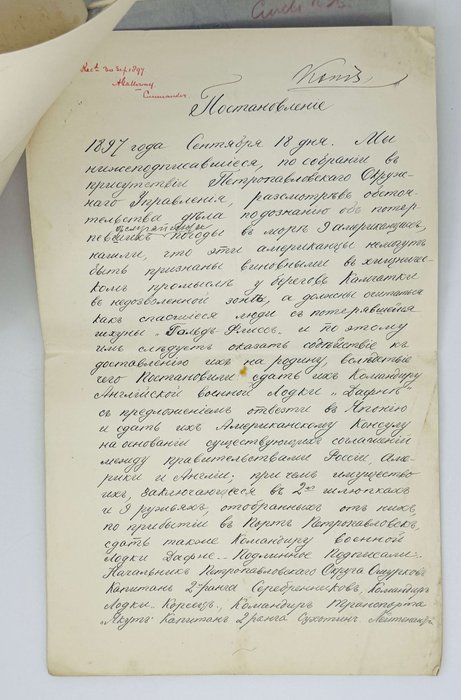 Rec'd 30 Sep. 1897
Commander
Копія
Постановленіе
1897 года Сентября 18 дня. Мы
нижеподписавшіеся, по собраніи въ
присутствіи Петропавловскаго Окруж-
наго Управленія, разсмотрѣвъ обстоя-
тельства дѣла по дознанію объ потер-
певшихъ погоды въ морѣ 9 американцахъ,
нашли, что эти американцы немогутъ
быть признаны виновными въ хищниче-
комъ промыслѣ у береговъ Камчатки
въ недозволенной зонѣ, а должны считаться
какъ спасшіеся люди съ потерявшейся
шхуны „Гольдъ-Флиссъ", и по этому
имъ слѣдуетъ оказать содѣйствіе къ
доставленію ихъ на родину, вслѣдствіе
чего Постановили: сдать ихъ Командиру
Англійской военной Лодки „Дафне"
съ предложеніемъ отвезти въ Японію
и сдать ихъ Американскому Консулу
на основаніи существующихъ соглашеній
между правительствами Россіи, Аме-
рики и Англіи; при чемъ имущество
ихъ, заключающееся въ 2хъ шлюпкахъ
и 9 ружьяхъ, отобранныхъ отъ нихъ
по прибытіи въ Портъ Петропавловскъ,
сдать также Командиру военной
Лодки Дафне. Подлинное Подписали:
Начальникъ Петропавловскаго Округа Ошурковъ
Капитанъ 2-ранга Серебренниковъ, Командиръ
Лодки „Кореецъ", Командиръ транспорта
„Якутъ" Капитанъ 2 ранга Сухотинъ Лейтенантъ